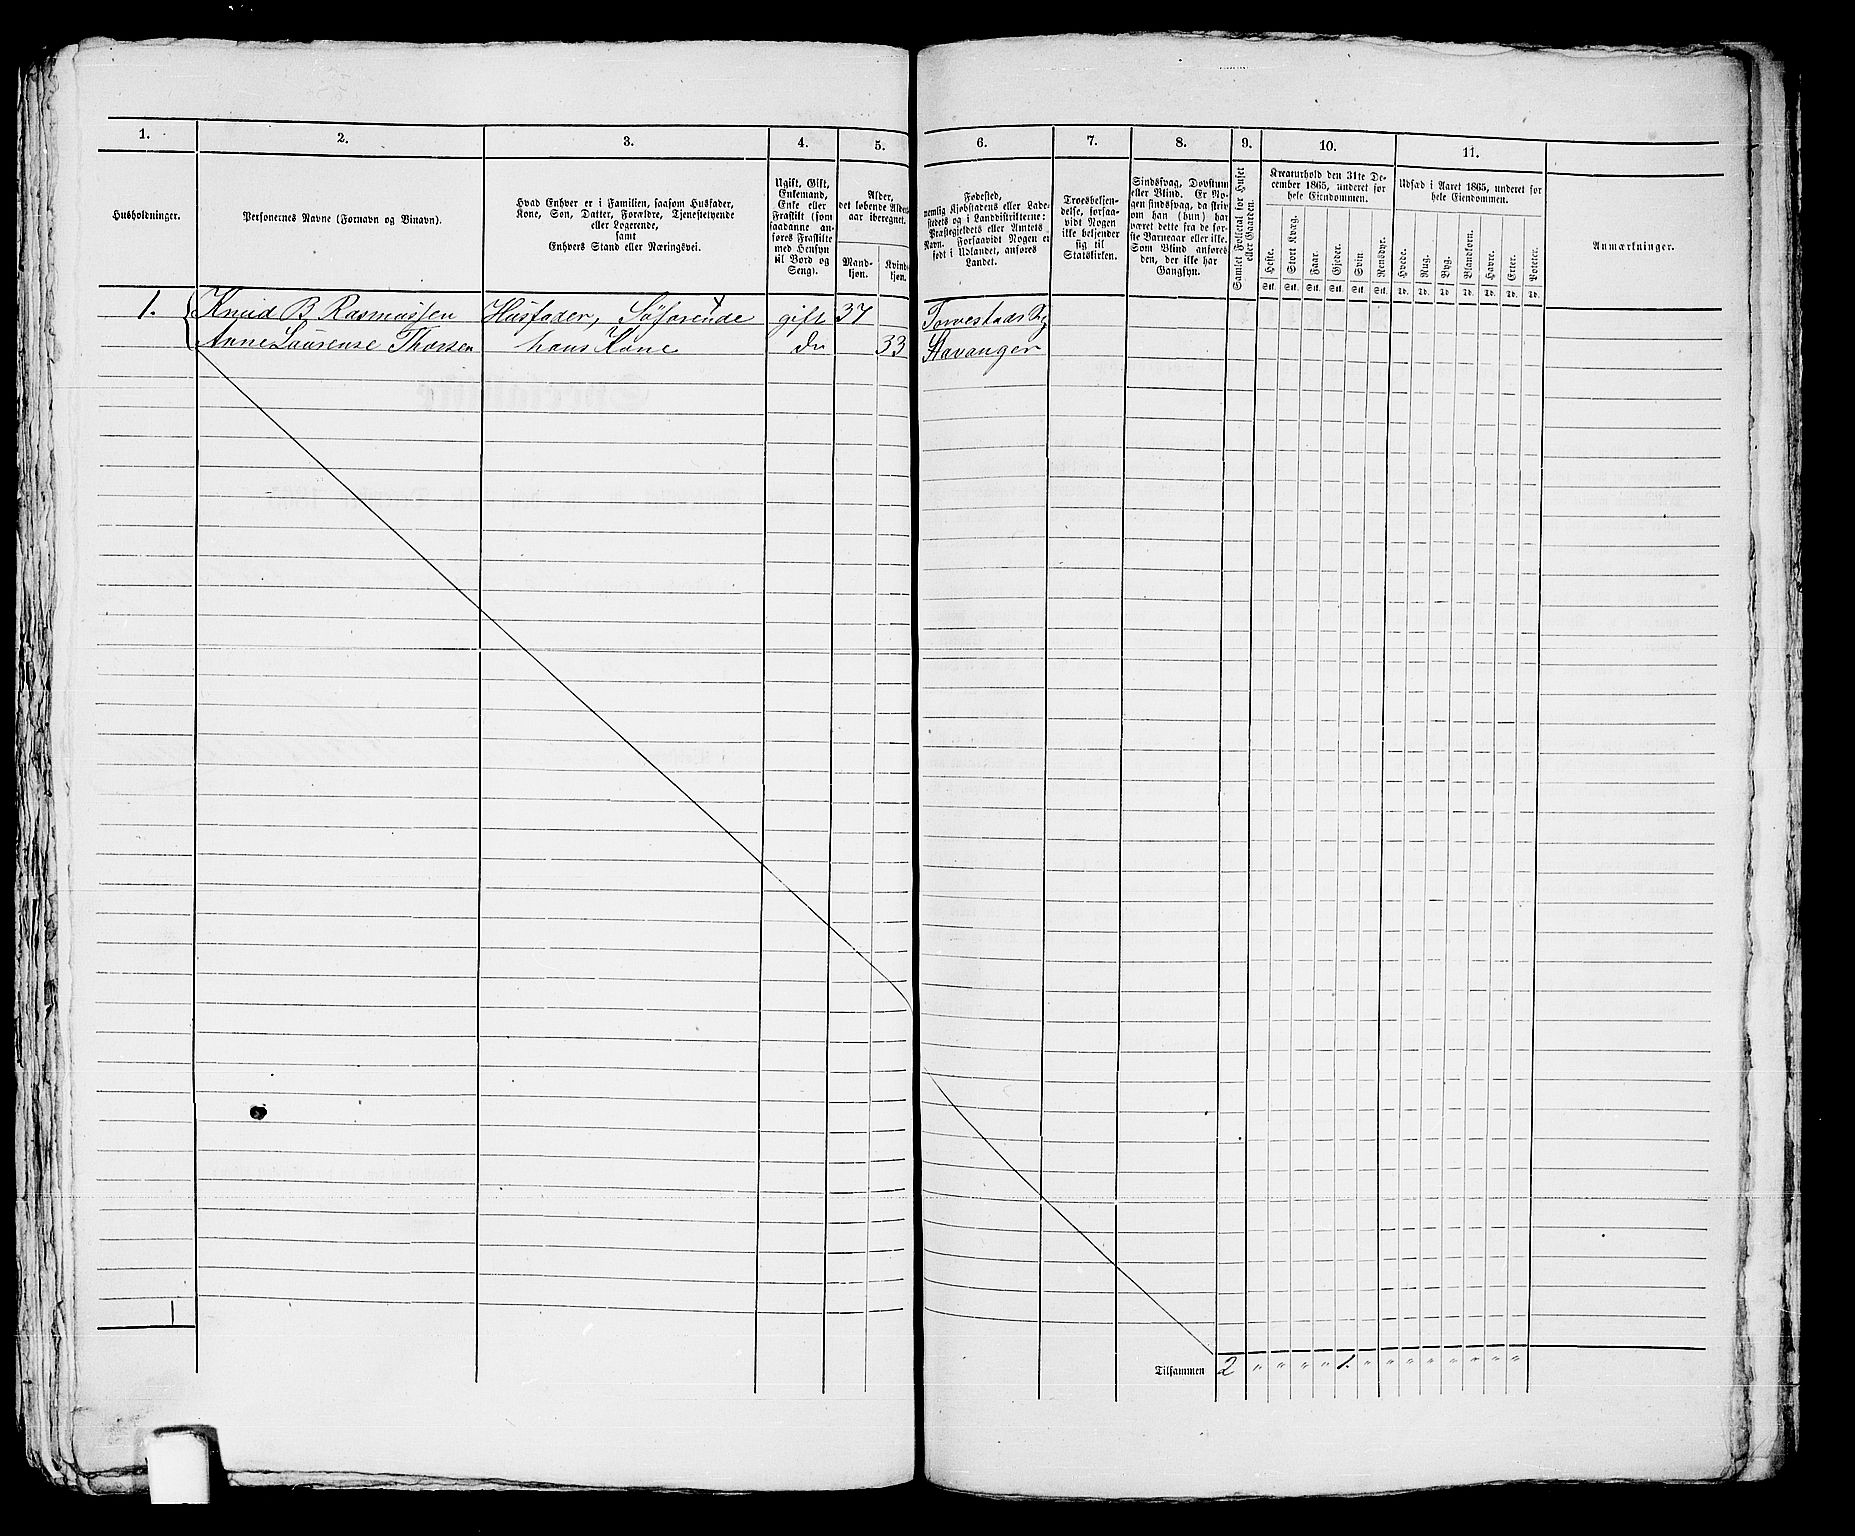 1. 2. 3. 4. 5. 6. 7. 8. 9. 10. 11.
Husholdninger.
Personernes Navne (Fornavn og Binavn).
Hvad Enhver er i Familien, saasom Husfader,
Kone, Søn, Datter, Forældre, Tjenestetyende
eller Logerende,
samt
Enhvers Stand eller Næringsvei.
Ugift, Gift,
Enkemand,
Enke eller
Fraskilt (som
saadanne an-
føres Fraskilte
med Hensyn
til Bord og
Seng).
Alder,
det løbende Alders-
aar iberegnet.
Mand-
kjøn.
Kvinde-
kjøn.
Fødested,
nemlig Kjøbstadens eller Lade-
stedets og i Landdistrikterne:
Præstegjeldets eller Amtets
Navn. Forsaavidt Nogen er
født i Udlandet, anføres
Landet.
Troesbekjen-
delse, forsaa-
vidt Nogen
ikke bekjender
sig til
Statskirken.
Sindssvag, Døvstum
eller Blind. Er No-
gen sindssvag, da skriv
om han (hun) har
været dette fra de før-
ste Barneaar eller ikke.
Som Blind anføres
den, der ikke har
Gangsyn.
Samlet Folketal for Huset
eller Gaarden.
Kreaturhold den 31te De-
cember 1865, underet for
hele Eiendommen.
Heste. Stort Kvæg. Faar. Gjeder. Svin. Rensdyr.
Stk. Stk. Stk. Stk. Stk. Stk.
Udsæd i Aaret 1865, underet for
hele Eiendommen.
Hvede. Rug. Byg. Blandkorn. Havre. Erter. Poteter.
Td. Td. Td. Td. Td. Td. Td.
Anmærkninger.
1. Knud B Rasmussen Husfader, Søfarende gift 37 Torvestads Pg
Anne Laurense Thorsen hans Kone do 33 Stavanger
1
Tilsammen 2 " " " " 1. " " " " " " " "